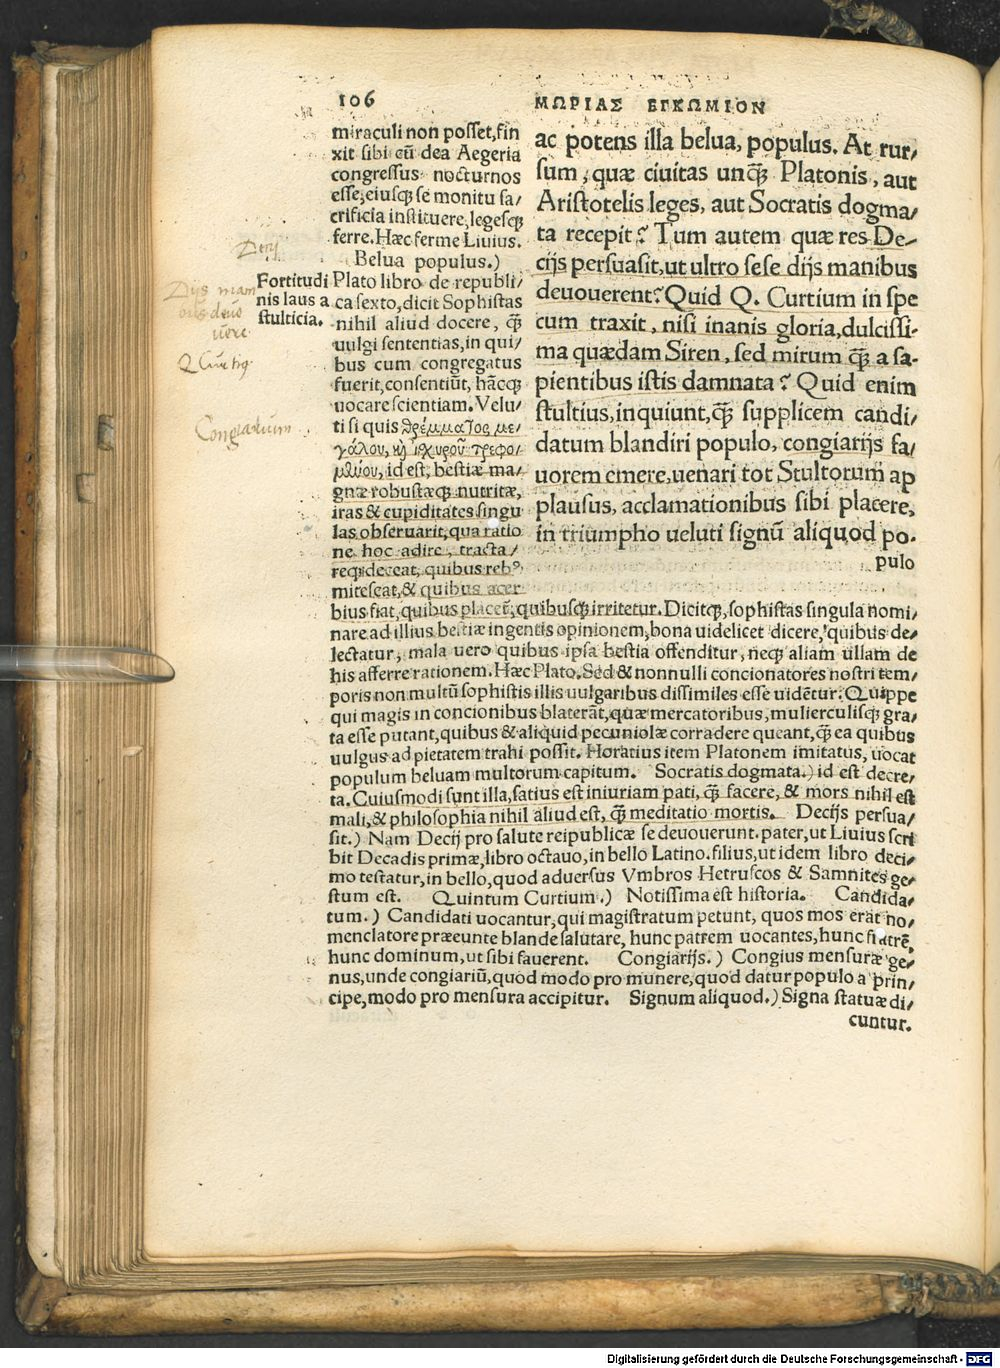 106
ΜΩΡΙΑΣ ΕΓΚΩΜΙΟΝ
miraculi non posset, fin
xit sibi cū dea Aegeria
congressus nocturnos
esse, eiusq́ꝫ se monitu sa/
crificia instituere, legesq́ꝫ
ferre. Hæc ferme Liuius.
Belua populus.)
Plato libro de republi/
ca sexto, dicit Sophistas
nihil aliud docere, q̄ꝫ
uulgi sententias, in qui/
bus cum congregatus
fuerit, consentiūt, hācq́ꝫ
uocare scientiam. Velu/
ti si quis θρέμματος με/
γάλου, καὶ ἰσχυροῦ τρεφο/
μένου, id est, bestiæ ma/
gnæ robustæq́ꝫ nutritæ,
iras & cupiditates singu
las obseruarit, qua ratio
ne hoc adire, tracta/
req́ꝫ deceat, quibus rebꝰ
mitescat, & quibus acer
Fortitudi
nis laus a
stulticia.
Decij
Dijs mani
bus deuo
uere
Q Curtiꝰ
Congiarium
ac potens illa belua, populus. At rur/
sum, quæ ciuitas unq̄ꝫ Platonis, aut
Aristotelis leges, aut Socratis dogma/
ta recepit? Tum autem quæ res De/
cijs persuasit, ut ultro sese dijs manibus
deuouerent? Quid Q. Curtium in spe
cum traxit, nisi inanis gloria, dulcissi/
ma quædam Siren, sed mirum q̄ꝫ a sa/
pientibus istis damnata? Quid enim
stultius, inquiunt, q̄ꝫ supplicem candi/
datum blandiri populo, congiarijs fa/
uorem emere, uenari tot Stultorum ap
plausus, acclamationibus sibi placere,
in triumpho ueluti signū aliquod po/
pulo
bius fiat, quibus placet, quibusq́ꝫ irritetur. Dicitq́ꝫ, sophistas singula nomi/
nare ad illius bestiæ ingentis opinionem, bona uidelicet dicere, quibus de/
lectatur, mala uero quibus ipsa bestia offenditur, neq́ꝫ aliam ullam de
his afferre rationem. Hæc Plato. Sed & nonnulli concionatores nostri tem/
poris non multū sophistis illis uulgaribus dissimiles esse uidētur. Quippe
qui magis in concionibus blaterāt, quæ mercatoribus, mulierculisq́ꝫ gra/
ta esse putant, quibus & aliquid pecuniolæ corradere queant, q̄ꝫ ea quibus
uulgus ad pietatem trahi possit. Horatius item Platonem imitatus, uocat
populum beluam multorum capitum. Socratis dogmata.) id est decre/
ta. Cuiusmodi sunt illa, satius est iniuriam pati, q̄ꝫ facere, & mors nihil est
mali, & philosophia nihil aliud est, q̄ꝫ meditatio mortis. Decijs persua/
sit.) Nam Decij pro salute reipublicæ se deuouerunt. pater, ut Liuius scri
bit Decadis primæ, libro octauo, in bello Latino. filius, ut idem libro deci/
mo testatur, in bello, quod aduersus Vmbros Hetruscos & Samnites ge/
stum est. Quintum Curtium.) Notissima est historia. Candida/
tum.) Candidati uocantur, qui magistratum petunt, quos mos erat no/
menclatore præeunte blande salutare, hunc patrem uocantes, hunc fratrē,
hunc dominum, ut sibi fauerent. Congiarijs.) Congius mensuræ ge/
nus, unde congiariū, quod modo pro munere, quod datur populo a prin/
cipe, modo pro mensura accipitur. Signum aliquod.) Signa statuæ di/
cuntur.
Digitalisierung gefördert durch die Deutsche Forschungsgemeinschaft - DFG